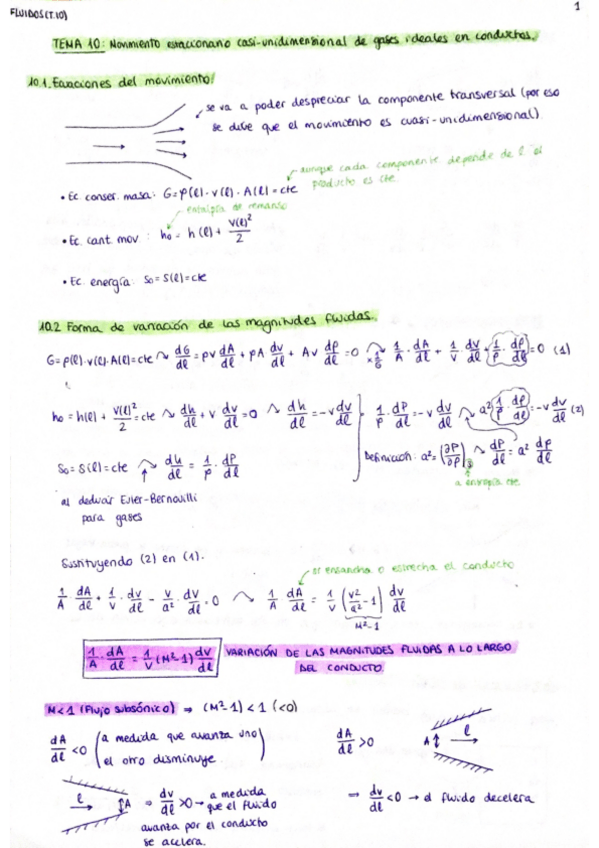 FLUIDOS (T.10)
1
TEMA 10: Movimiento estacionario casi-unidimensional de gases ideales en conductos.
10.1. Ecuaciones del movimiento:
se va a poder despreciar la componente transversal (por eso
se dice que el movimiento es cuasi-unidimensional).
aunque cada componente depende de l el
producto es cte
• Ec. conser. masa: G = ρ(l)·v(l)·A(l) = cte
entalpía de remanso
• Ec. cant. mov: h₀ = h(l) + v(l)²/2
• Ec. energía: s₀ = s(l) = cte
10.2 Forma de variación de las magnitudes fluidas.
G = ρ(l)·v(l)·A(l) = cte ↷ dG/dl = ρv dA/dl + ρA dv/dl + Av dρ/dl = 0 ↷ ×1/G 1/A · dA/dl + 1/v · dv/dl + 1/ρ · dρ/dl = 0 (1)
h₀ = h(l) + v(l)²/2 = cte ↷ dh/dl + v dv/dl = 0 ↷ dh/dl = -v dv/dl
1/ρ · dP/dl = -v dv/dl ↷ a² 1/ρ · dρ/dl = -v dv/dl (2)
s₀ = s(l) = cte ↷ dh/dl = 1/ρ · dP/dl
Definición: a² = (∂P/∂ρ)s ↷ dP/dl = a² dρ/dl
a entropía cte.
al deducir Euler-Bernouilli
para gases
Sustituyendo (2) en (1).
se ensancha o estrecha el conducto
1/A · dA/dl + 1/v · dv/dl - v/a² · dv/dl = 0 ↷ 1/A dA/dl = 1/v (v²/a² - 1) dv/dl
M²-1
1/A · dA/dl = 1/v (M²-1) dv/dl VARIACIÓN DE LAS MAGNITUDES FLUIDAS A LO LARGO
DEL CONDUCTO
M<1 (Flujo subsónico) ⇒ (M²-1) < 1 (<0)
dA/dl < 0 (a medida que avanza uno
el otro disminuye)
dA/dl > 0
A
l
l
A
⇒ dv/dl > 0 → a medida
que el fluido
avanza por el conducto
se acelera.
⇒ dv/dl < 0 → el fluido decelera